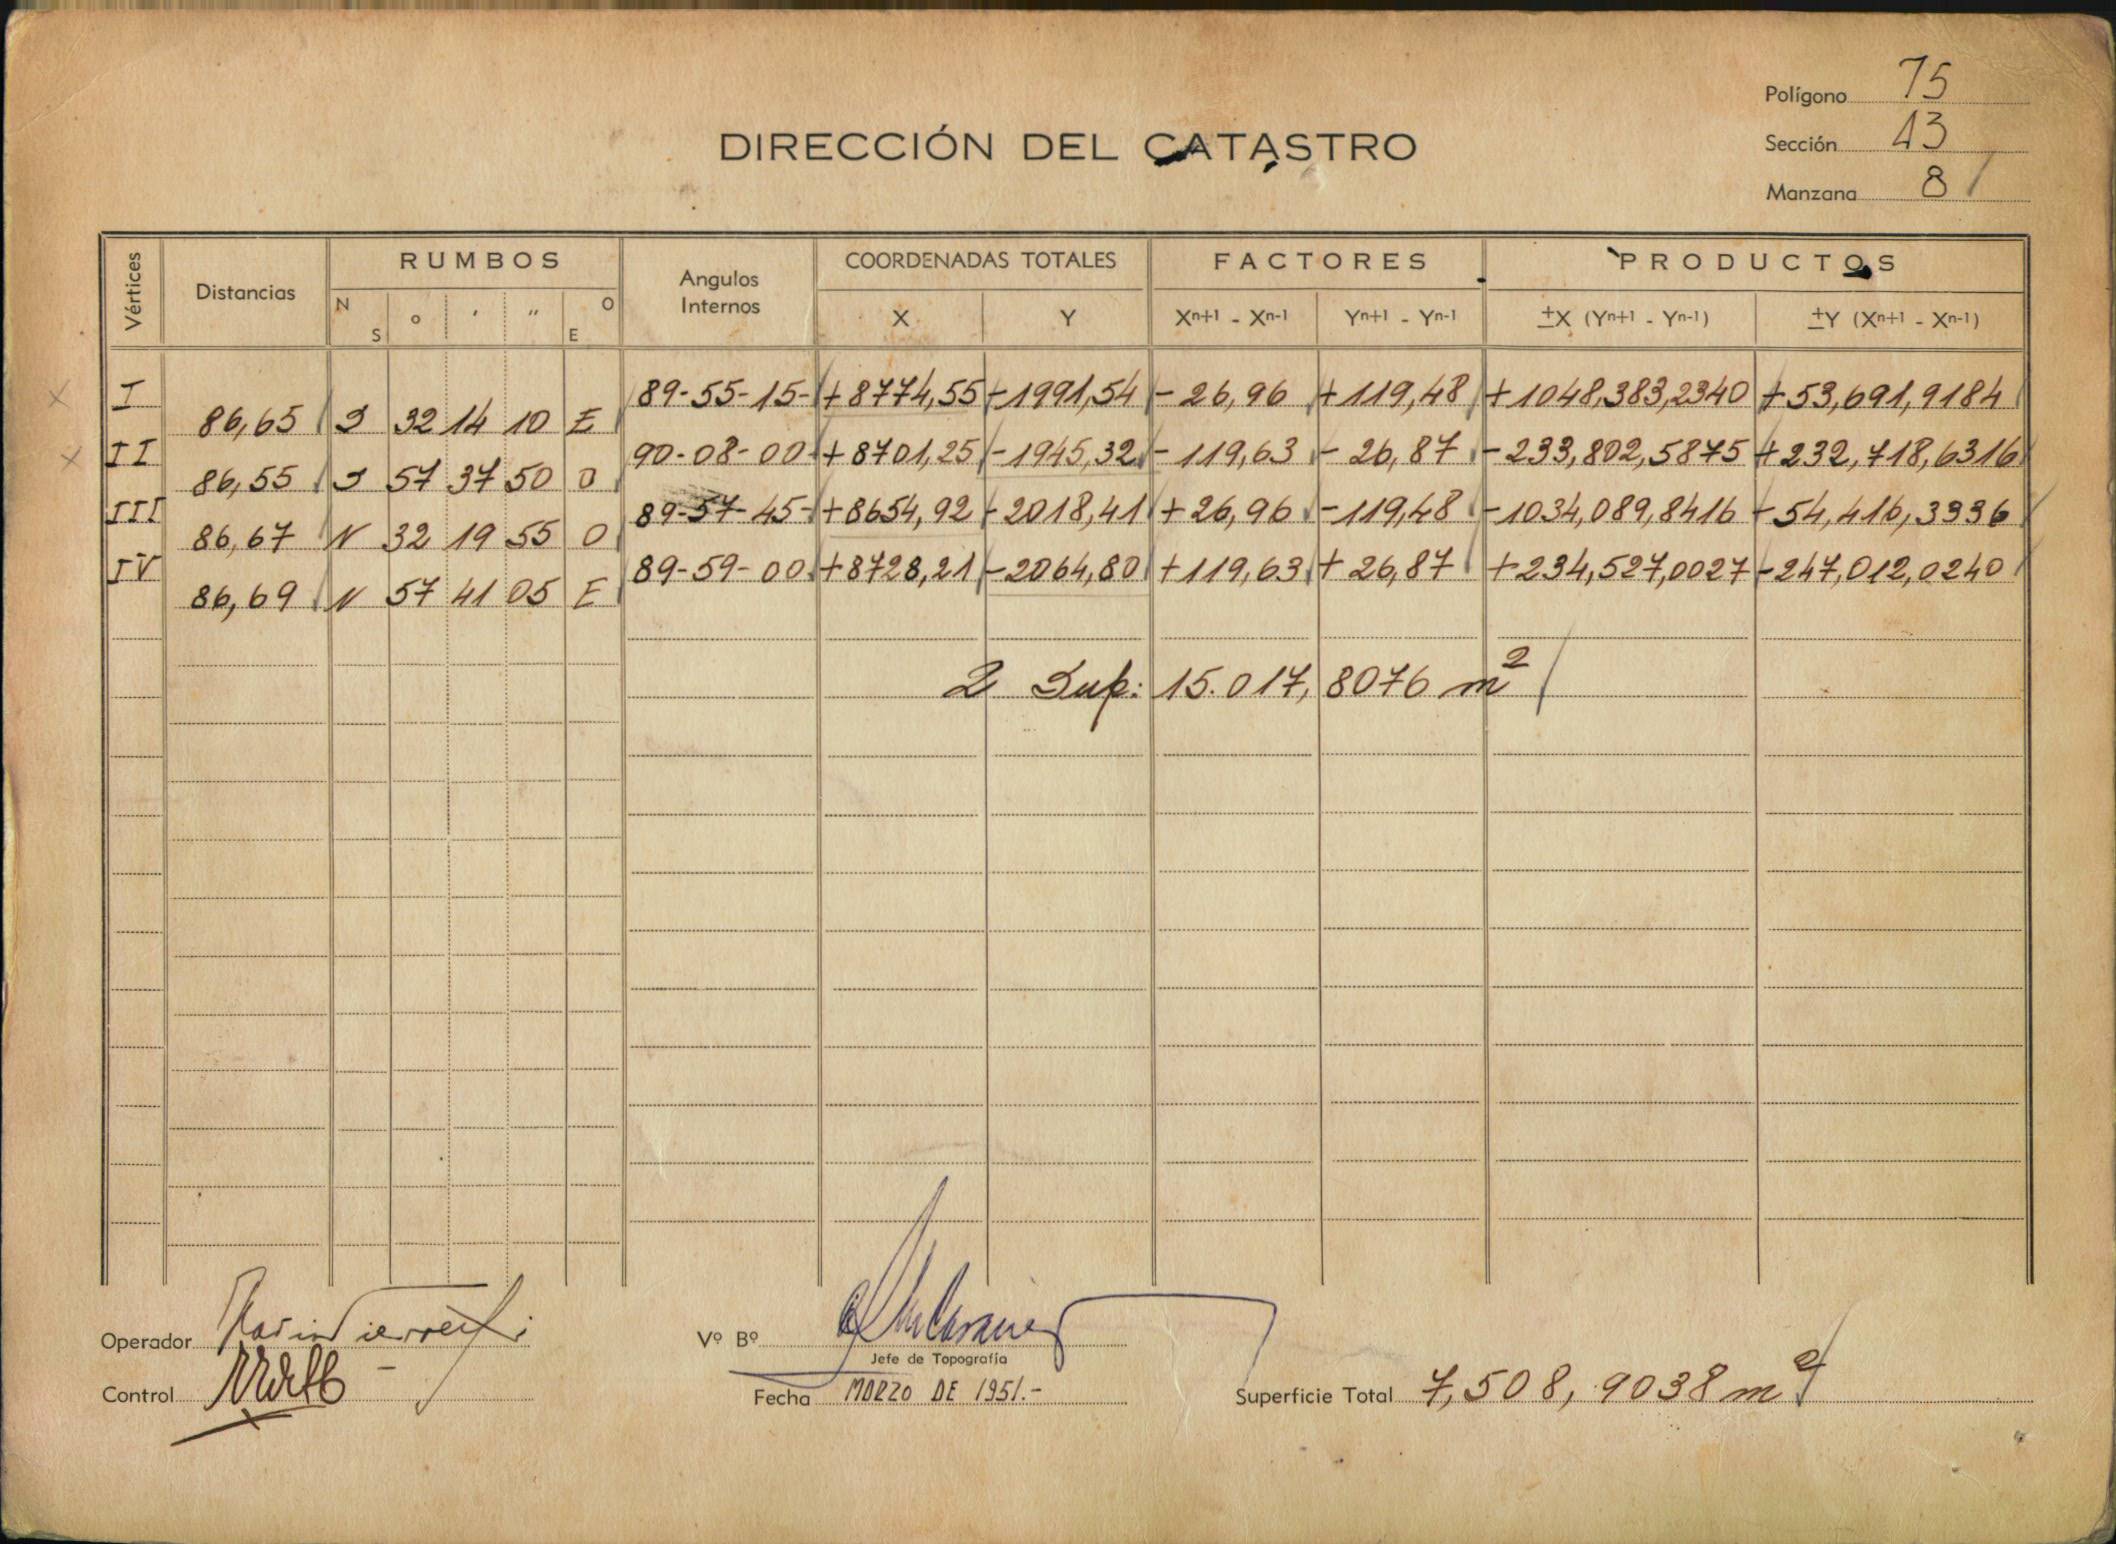 Polígono 75
DIRECCIÓN DEL CATASTRO
Sección 43
Manzana 8
Vértices Distancias RUMBOS Angulos Internos COORDENADAS TOTALES FACTORES PRODUCTOS
N S ° ' " O E X Y Xn+1 - Xn-1 Yn+1 - Yn-1 ±X (Yn+1 - Yn-1) ±Y (Xn+1 - Xn-1)
I 89-55-15- +8774,55 -1991,54 - 26,96 +119,48 +1048,383,2340 +53,691,9184
86,65 S 32 14 10 E
II 90-08-00- +8701,25 -1945,32 -119,63 - 26,87 -233,802,5875 +232,718,6316
86,55 S 57 37 50 O
III 89-57-45- +8654,92 -2018,41 +26,96 -119,48 -1034,089,8416 -54,416,3336
86,67 N 32 19 55 O
IV 89-59-00 +8728,21 -2064,80 +119,63 + 26,87 +234,527,0027 -247,012,0240
86,69 N 57 41 05 E
2 Sup: 15.017,8076 m²
Operador
Vº Bº
Jefe de Topografía
Control
Fecha MARZO DE 1951.-
Superficie Total 7,508,9038 m²